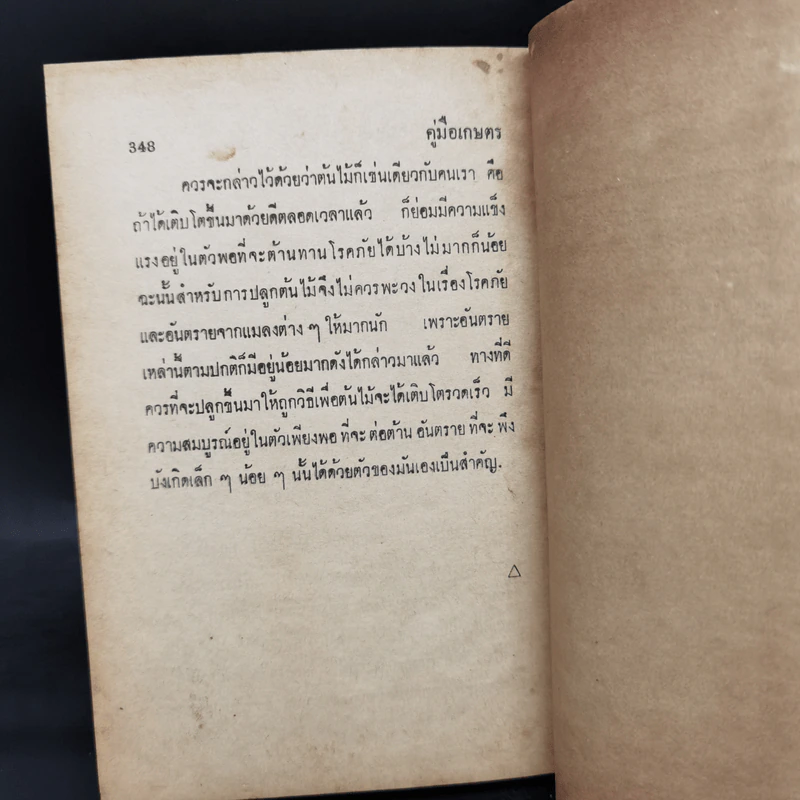 348 คู่มือเกษตร
ควรจะกล่าวไว้ด้วยว่าต้นไม้ก็เช่นเดียวกับคนเรา คือ
ถ้าได้เติบโตขึ้นมาด้วยดีตลอดเวลาแล้ว ก็ย่อมมีความแข็ง
แรงอยู่ในตัวพอที่จะต้านทานโรคภัยได้บ้างไม่มากก็น้อย
ฉะนั้นสำหรับการปลูกต้นไม้จึงไม่ควรพะวงในเรื่องโรคภัย
และอันตรายจากแมลงต่าง ๆ ให้มากนัก เพราะอันตราย
เหล่านี้ตามปกติก็มีอยู่น้อยมากดังได้กล่าวมาแล้ว ทางที่ดี
ควรที่จะปลูกขึ้นมาให้ถูกวิธีเพื่อต้นไม้จะได้เติบโตรวดเร็ว มี
ความสมบูรณ์อยู่ในตัวเพียงพอ ที่จะ ต่อต้าน อันตราย ที่จะ พึง
บังเกิดเล็ก ๆ น้อย ๆ นั้นได้ด้วยตัวของมันเองเป็นสำคัญ.
△